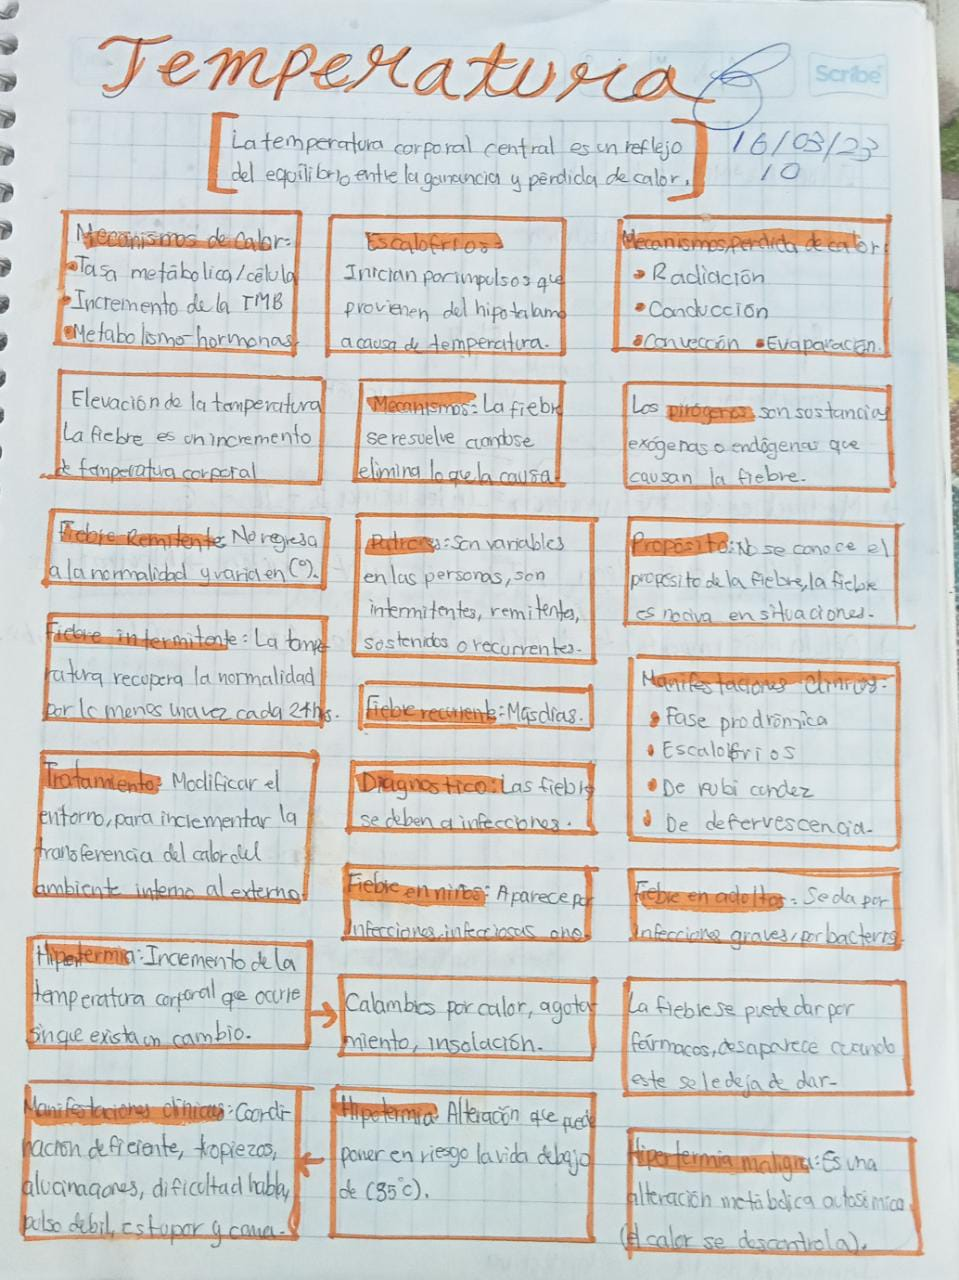 Temperatura
Scribe
16/03/23
10
La temperatura corporal central es un reflejo
del equilibrio entre la ganancia y perdida de calor.
Mecanismos de calor:
•Tasa metábolica/célula
•Incremento de la TMB
•Metabolismo-hormonas
Escalofrios:
Inician por impulsos que
provienen del hipotalamo
a causa de temperatura.
Mecanismos, perdida de calor:
• Radiación
• Conducción
•Convección •Evaparación.
Elevación de la temperatura
La fiebre es un incremento
de temperatura corporal
Mecanismos: La fiebre
se resuelve cuando se
elimina lo que la causa.
Los pirógenos son sustancias
exógenas o endógenas que
causan la fiebre.
Fiebre Remitente: No regresa
a la normalidad y varia en (°).
Patrones: Son variables
en las personas, son
intermitentes, remitentes,
sostenidos o recurrentes.
Propósito: No se conoce el
propósito de la fiebre, la fiebre
es nociva en situaciones.
Fiebre intermitente: La tempe
ratura recupera la normalidad
por lo menos una vez cada 24hs.
Fiebre recurrente: Más dias.
Manifestaciones clinicas:
• Fase prodrómica
• Escalofrios
• De rubi candez
• De defervescencia.
Tratamiento: Modificar el
entorno, para incrementar la
transferencia del calor del
ambiente interno al externo.
Diagnostico: Las fiebre
se deben a infecciones.
Fiebre en niños: Aparece por
infecciones, infecciosas o no
Fiebre en adultos: Se da por
infecciones graves, por bacterias
Hipertermia: Incremento de la
temperatura corporal que ocurre
sin que exista un cambio.
Calambres por calor, agota
miento, insolación.
La fiebre se puede dar por
fármacos, desaparece cuando
este se le deja de dar.
Manifestaciones clinicas: Coordi-
nación deficiente, tropiezos,
alucinaciones, dificultad habla,
pulso debil, estupor y coma.
Hipotermia: Alteración que puede
poner en riesgo la vida debajo
de (35°c).
Hipertermia maligna: Es una
alteración metábolica autosómica
(el calor se descontrola).